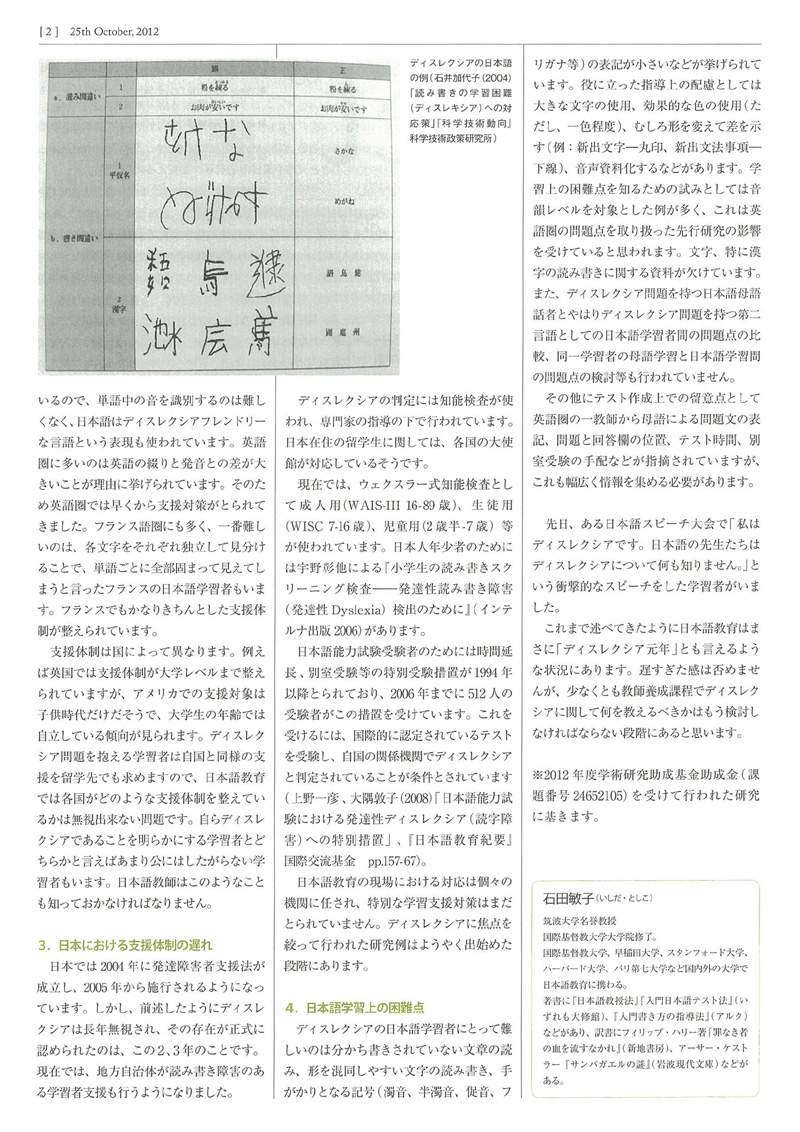 [ 2 ] 25th October, 2012
誤
正
a. 読み間違い
1
2
お肉が安いです
お肉が安いです
b. 書き間違い
1
平仮名
さかな
めがね
2
漢字
ディスレクシアの日本語
の例（石井加代子（2004）
「読み書きの学習困難
（ディスレキシア）への対
応策」『科学技術動向』
科学技術政策研究所）
いるので、単語中の音を識別するのは難し
くなく、日本語はディスレクシアフレンドリー
な言語という表現も使われています。英語
圏に多いのは英語の綴りと発音との差が大
きいことが理由に挙げられています。そのた
め英語圏では早くから支援対策がとられて
きました。フランス語圏にも多く、一番難し
いのは、各文字をそれぞれ独立して見分け
ることで、単語ごとに全部固まって見えてし
まうと言ったフランスの日本語学習者もいま
す。フランスでもかなりきちんとした支援体
制が整えられています。
支援体制は国によって異なります。例え
ば英国では支援体制が大学レベルまで整え
られていますが、アメリカでの支援対象は
子供時代だけだそうで、大学生の年齢では
自立している傾向が見られます。ディスレク
シア問題を抱える学習者は自国と同様の支
援を留学先でも求めますので、日本語教育
では各国がどのような支援体制を整えてい
るかは無視出来ない問題です。自らディスレ
クシアであることを明らかにする学習者とど
ちらかと言えばあまり公にはしたがらない学
習者もいます。日本語教師はこのようなこと
も知っておかなければなりません。
3．日本における支援体制の遅れ
日本では2004年に発達障害者支援法が
成立し、2005年から施行されるようになっ
ています。しかし、前述したようにディスレ
クシアは長年無視され、その存在が正式に
認められたのは、この2、3年のことです。
現在では、地方自治体が読み書き障害のあ
る学習者支援も行うようになりました。
ディスレクシアの判定には知能検査が使
われ、専門家の指導の下で行われています。
日本在住の留学生に関しては、各国の大使
館が対応しているそうです。
現在では、ウェクスラー式知能検査とし
て成人用(WAIS-III 16-89歳)、生徒用
(WISC 7-16歳)、児童用(2歳半-7歳) 等
が使われています。日本人年少者のために
は宇野彰他による『小学生の読み書きスク
リーニング検査――発達性読み書き障害
(発達性Dyslexia) 検出のために』(インテ
ルナ出版2006)があります。
日本語能力試験受験者のためには時間延
長、別室受験等の特別受験措置が1994年
以降とられており、2006年までに512人の
受験者がこの措置を受けています。これを
受けるには、国際的に認定されているテスト
を受験し、自国の関係機関でディスレクシア
と判定されていることが条件とされています
(上野一彦、大隅敦子(2008)「日本語能力試
験における発達性ディスレクシア(読字障
害)への特別措置」、『日本語教育紀要』
国際交流基金 pp.157-67)。
日本語教育の現場における対応は個々の
機関に任され、特別な学習支援対策はまだ
とられていません。ディスレクシアに焦点を
絞って行われた研究例はようやく出始めた
段階にあります。
4．日本語学習上の困難点
ディスレクシアの日本語学習者にとって難
しいのは分かち書きされていない文章の読
み、形を混同しやすい文字の読み書き、手
がかりとなる記号(濁音、半濁音、促音、フ
リガナ等)の表記が小さいなどが挙げられて
います。役に立った指導上の配慮としては
大きな文字の使用、効果的な色の使用(た
だし、一色程度)、むしろ形を変えて差を示
す(例：新出文字―丸印、新出文法事項―
下線)、音声資料化するなどがあります。学
習上の困難点を知るための試みとしては音
韻レベルを対象とした例が多く、これは英
語圏の問題点を取り扱った先行研究の影響
を受けていると思われます。文字、特に漢
字の読み書きに関する資料が欠けています。
また、ディスレクシア問題を持つ日本語母語
話者とやはりディスレクシア問題を持つ第二
言語としての日本語学習者間の問題点の比
較、同一学習者の母語学習と日本語学習間
の問題点の検討等も行われていません。
その他にテスト作成上での留意点として
英語圏の一教師から母語による問題文の表
記、問題と回答欄の位置、テスト時間、別
室受験の手配などが指摘されていますが、
これも幅広く情報を集める必要があります。
先日、ある日本語スピーチ大会で「私は
ディスレクシアです。日本語の先生たちは
ディスレクシアについて何も知りません。」と
いう衝撃的なスピーチをした学習者がいま
した。
これまで述べてきたように日本語教育はま
さに「ディスレクシア元年」とも言えるよう
な状況にあります。遅すぎた感は否めませ
んが、少なくとも教師養成課程でディスレク
シアに関して何を教えるべきかはもう検討し
なければならない段階にあると思います。
※2012年度学術研究助成基金助成金(課
題番号24652105)を受けて行われた研究
に基きます。
石田敏子(いしだ・としこ)
筑波大学名誉教授
国際基督教大学大学院修了。
国際基督教大学、早稲田大学、スタンフォード大学、
ハーバード大学、パリ第七大学など国内外の大学で
日本語教育に携わる。
著書に『日本語教授法』『入門日本語テスト法』(い
ずれも大修館)、『入門書き方の指導法』(アルク)
などがあり、訳書にフィリップ・ハリー著『罪なき者
の血を流すなかれ』(新地書房)、アーサー・ケスト
ラー『サンバガエルの謎』(岩波現代文庫)などが
ある。